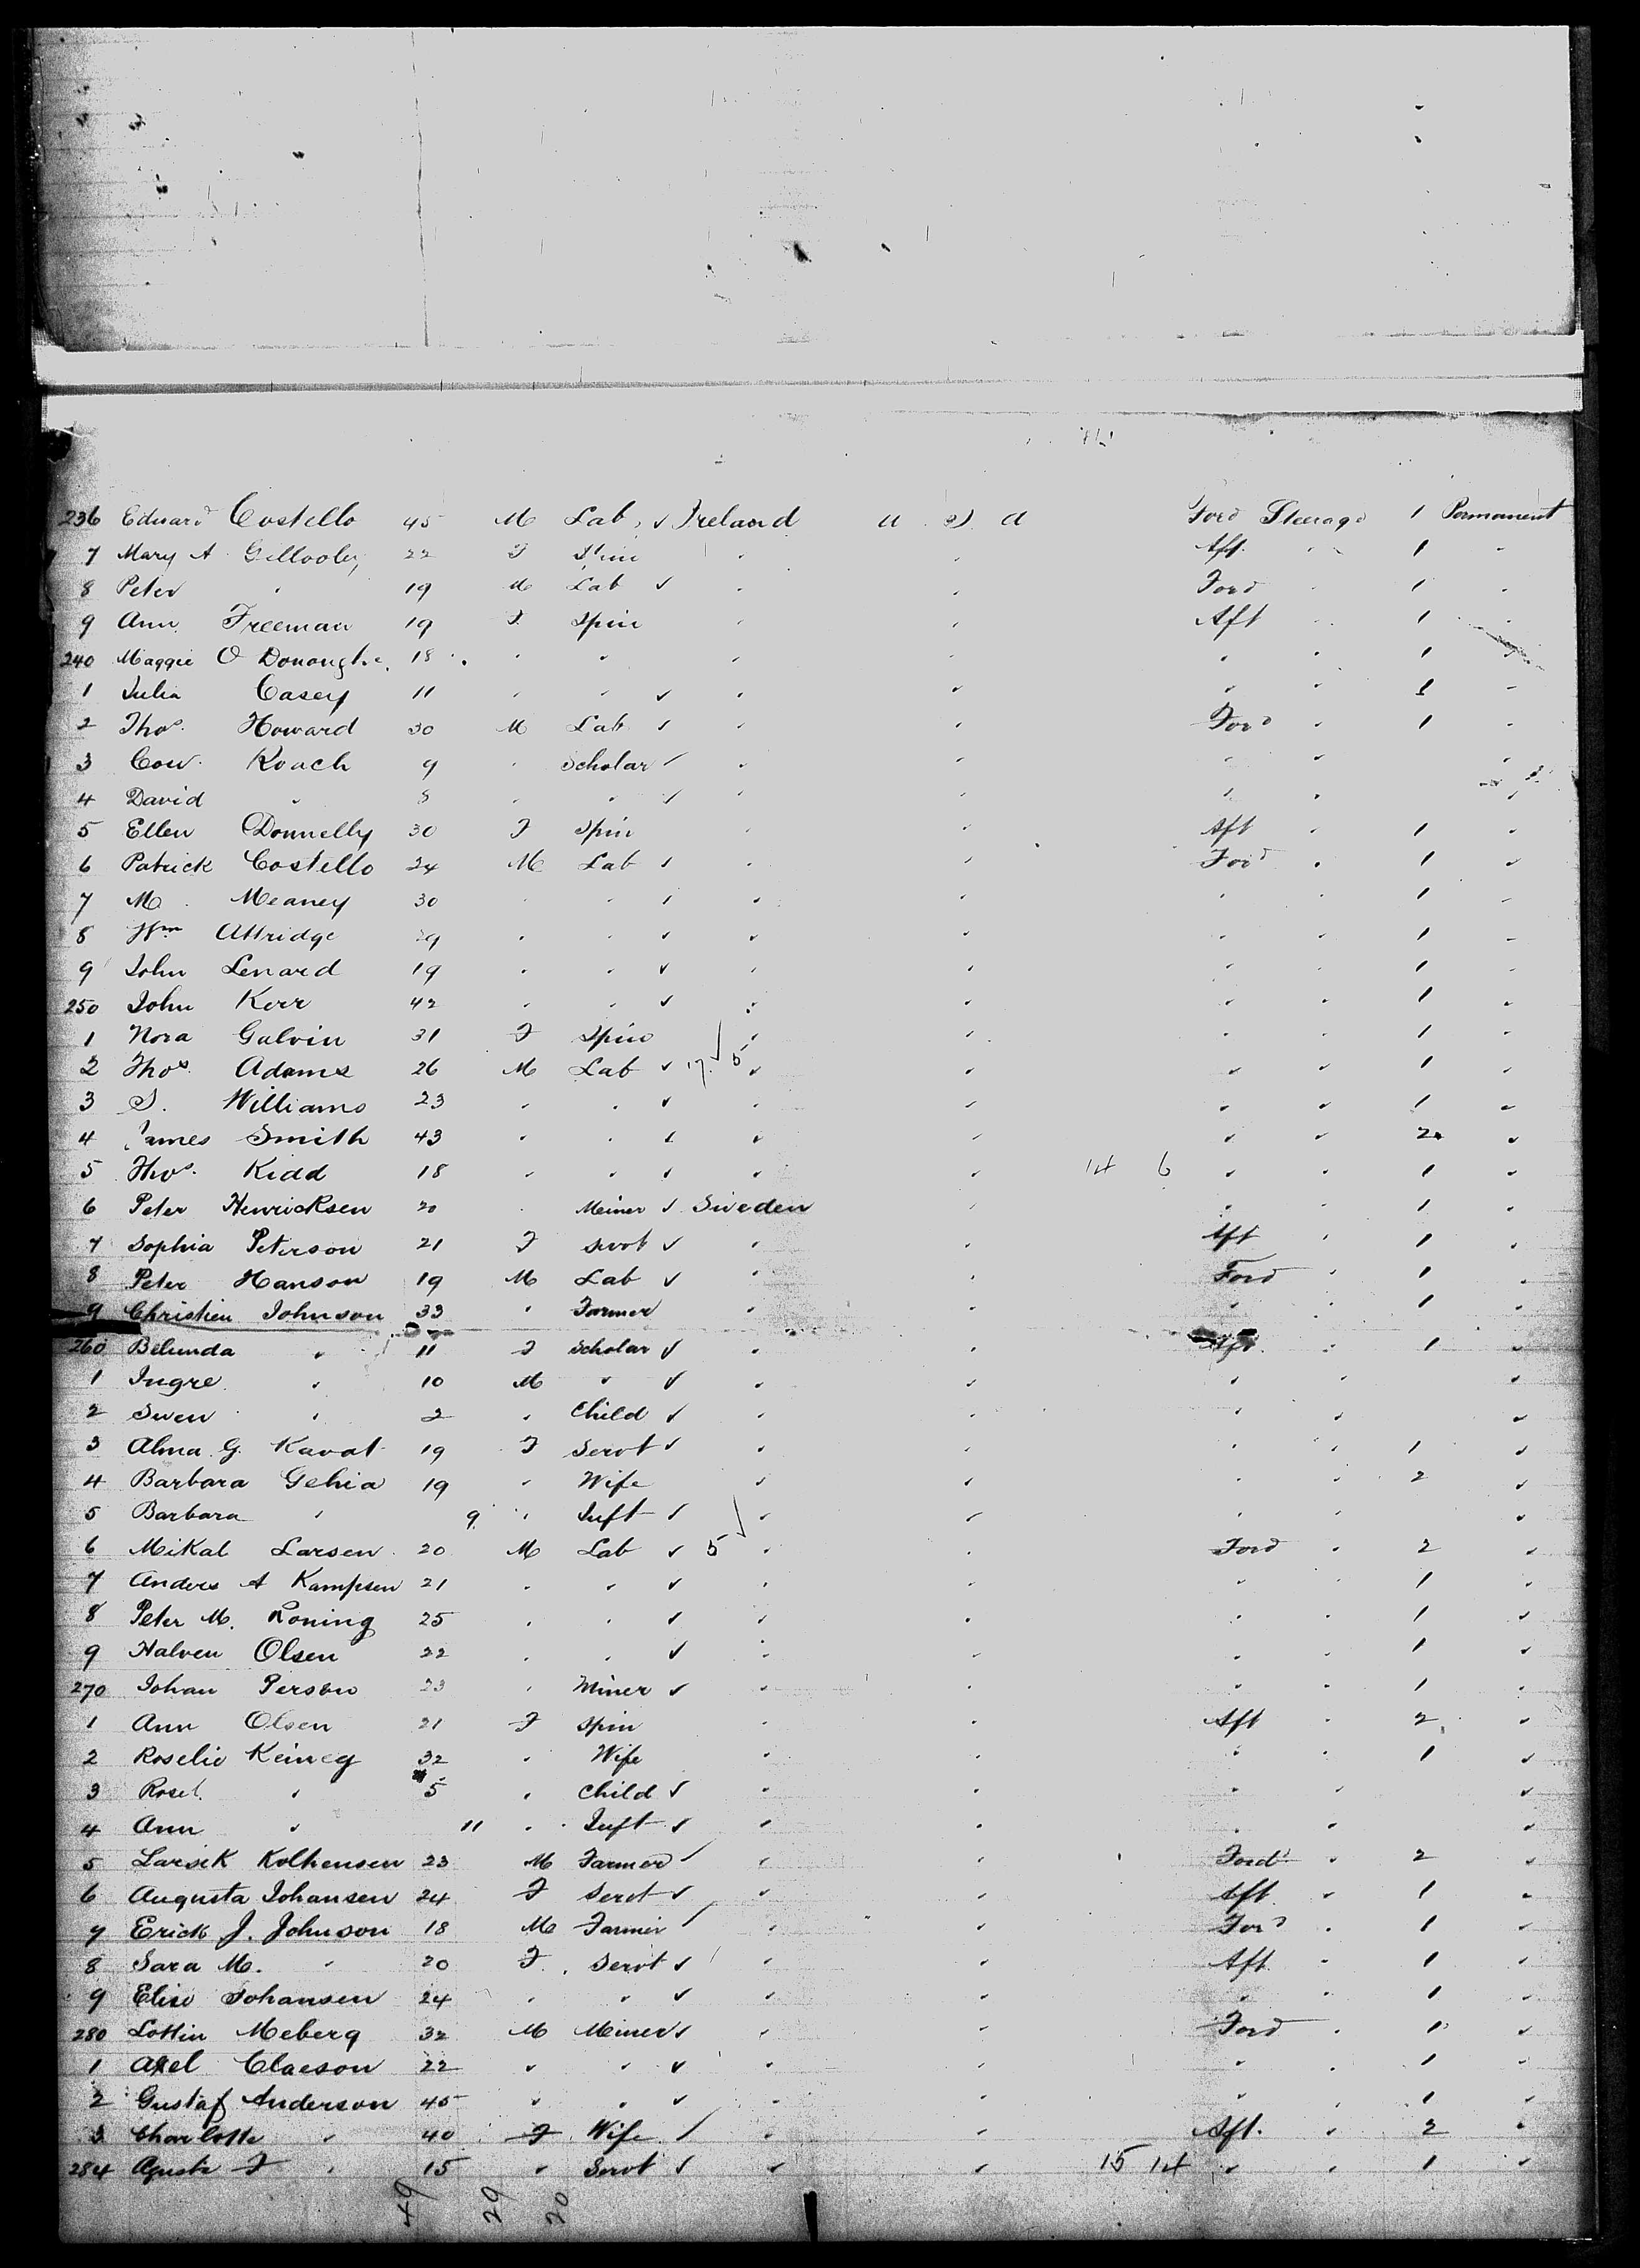 236 Eduard Costello 45 M Lab ✓ Ireland U S A Ford Steerage 1 Permanent
7 Mary A Gillooley 22 F Spin " " Aft " 1 "
8 Peter " 19 M Lab ✓ " " Ford " 1 "
9 Ann Freeman 19 F Spin " " Aft " 1 "
240 Maggie O Donoughe 18 " " " " " " 1 "
1 Julia Casey 11 " " ✓ " " " " 1 "
2 Thos. Howard 30 M Lab ✓ " " Ford " 1 "
3 Con. Roach 9 " Scholar ✓ " " " " "
4 David " 8 " " ✓ " " " " "
5 Ellen Donnelly 30 F Spin " " Aft " 1 "
6 Patrick Costello 24 M Lab ✓ " " Ford " 1 "
7 M. Meaney 30 " " ✓ " " " " 1 "
8 Wm Attridge 29 " " ✓ " " " " 1 "
9 John Lenard 19 " " ✓ " " " " 1 "
250 John Kerr 42 " " ✓ " " " " 1 "
1 Nora Galvin 31 F Spin " " " " 1 "
2 Thos. Adams 26 M Lab ✓ 17 5 " " " " 1 "
3 S. Williams 23 " " ✓ " " " " 1 "
4 James Smith 43 " " ✓ " " " " 2 "
5 Thos. Kidd 18 " " ✓ " " 14 6 " " 1 "
6 Peter Henricksen 20 " Meiner ✓ Sweden " " " 1 "
7 Sophia Peterson 21 F Servt ✓ " " Aft " 1 "
8 Peter Hanson 19 M Lab ✓ " " Ford " 1 "
9 Christien Johnson 33 " Farmer " " " " 1 "
260 Belunda " 11 F Scholar ✓ " " Aft " 1 "
1 Ingre " 10 M " ✓ " " " " "
2 Swen " 2 " Child ✓ " " " " "
3 Alma G. Kavat 19 F Servt ✓ " " " " 1 "
4 Barbara Gehia 19 " Wife " " " " 2 "
5 Barbara " 9 " Inft ✓ " " " " "
6 Mikal Larsen 20 M Lab ✓ 5 " " Ford " 2 "
7 Anders A Kampsen 21 " " ✓ " " " " 1 "
8 Peter M. Koning 25 " " ✓ " " " " 1 "
9 Halven Olsen 22 " " ✓ " " " " 1 "
270 Johan Person 23 " Miner ✓ " " " " 1 "
1 Ann Olsen 21 F Spin " " Aft " 2 "
2 Roselie Keineg 32 " Wife " " " " 1 "
3 Rosel. " 5 " Child ✓ " " " " "
4 Ann " 11 " Inft ✓ " " " " "
5 Larsek Kolhensen 23 M Farmer ✓ " " Ford " 2 "
6 Augusta Johansen 24 F Servt ✓ " " Aft " 1 "
7 Erick J. Johnson 18 M Farmer ✓ " " Ford " 1 "
8 Sara M. " 20 F Servt ✓ " " Aft " 1 "
9 Elise Johansen 24 " " ✓ " " " " 1 "
280 Lottin Meberg 32 M Miner ✓ " " Ford " 1 "
1 Axel Claeson 22 " " ✓ " " " " 1 "
2 Gustaf Anderson 45 " " ✓ " " " " 1 "
3 Charlotte " 40 F Wife ✓ " " Aft. " 2 "
284 Agusta F " 15 " Servt ✓ " " 15 14 " " 1 "
49 29 20